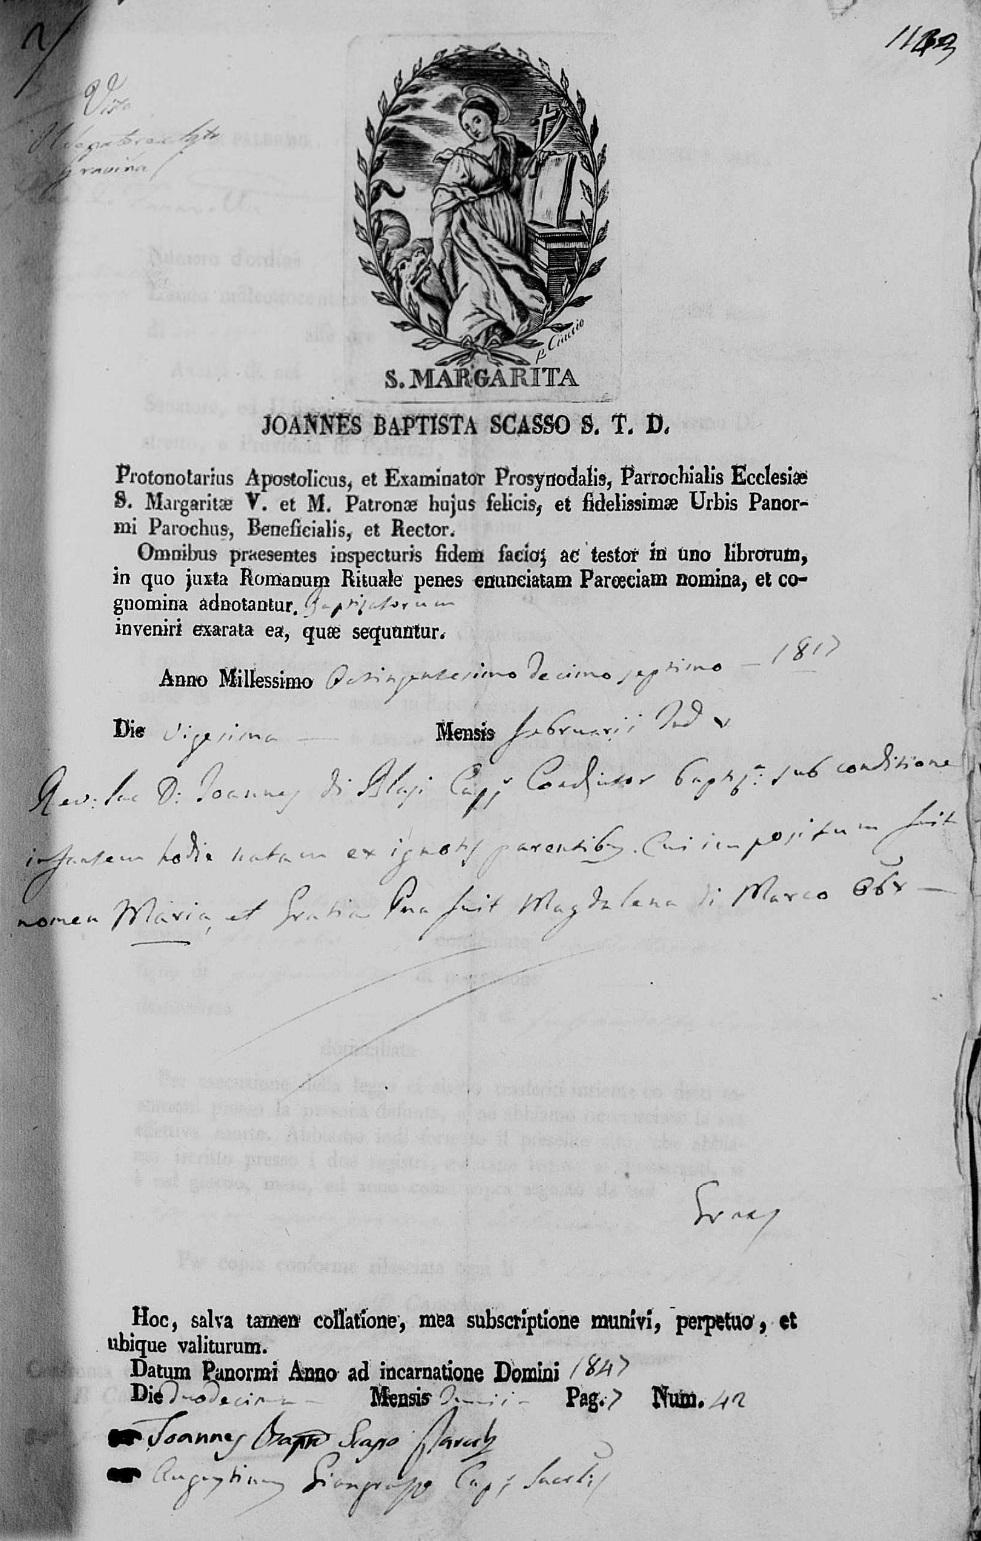 1123
Visa
Gravina
S. MARGARITA
JOANNES BAPTISTA SCASSO S. T. D.
Protonotarius Apostolicus, et Examinator Prosynodalis, Parrochialis Ecclesiæ
S. Margaritæ V. et M. Patronæ hujus felicis, et fidelissimæ Urbis Panor-
mi Parochus, Beneficialis, et Rector.
Omnibus praesentes inspecturis fidem facio, ac testor in uno librorum,
in quo juxta Romanum Rituale penes enunciatam Parœciam nomina, et co-
gnomina adnotantur. Baptizatorum
inveniri exarata ea, quæ sequuntur.
Anno Millessimo Octingentesimo decimo septimo — 1817
Die Vigesima — Mensis februarii Ind v
Rev: Sac D: Joannes di Blasi Capp Coadjutor baptiz.t sub conditione
infantem hodie natam ex ignotis parentibus. Cui impositum fuit
nomen Maria, et Gratia Pna fuit Magdalena di Marco Obx —
Hoc, salva tamen collatione, mea subscriptione munivi, perpetuo, et
ubique valiturum.
Datum Panormi Anno ad incarnatione Domini 1847
Die duodecima — Mensis Junii — Pag. 7 Num. 42
Joannes Bapta Scasso Paroch
Augustinus Giangrasso Capp Sacrlis